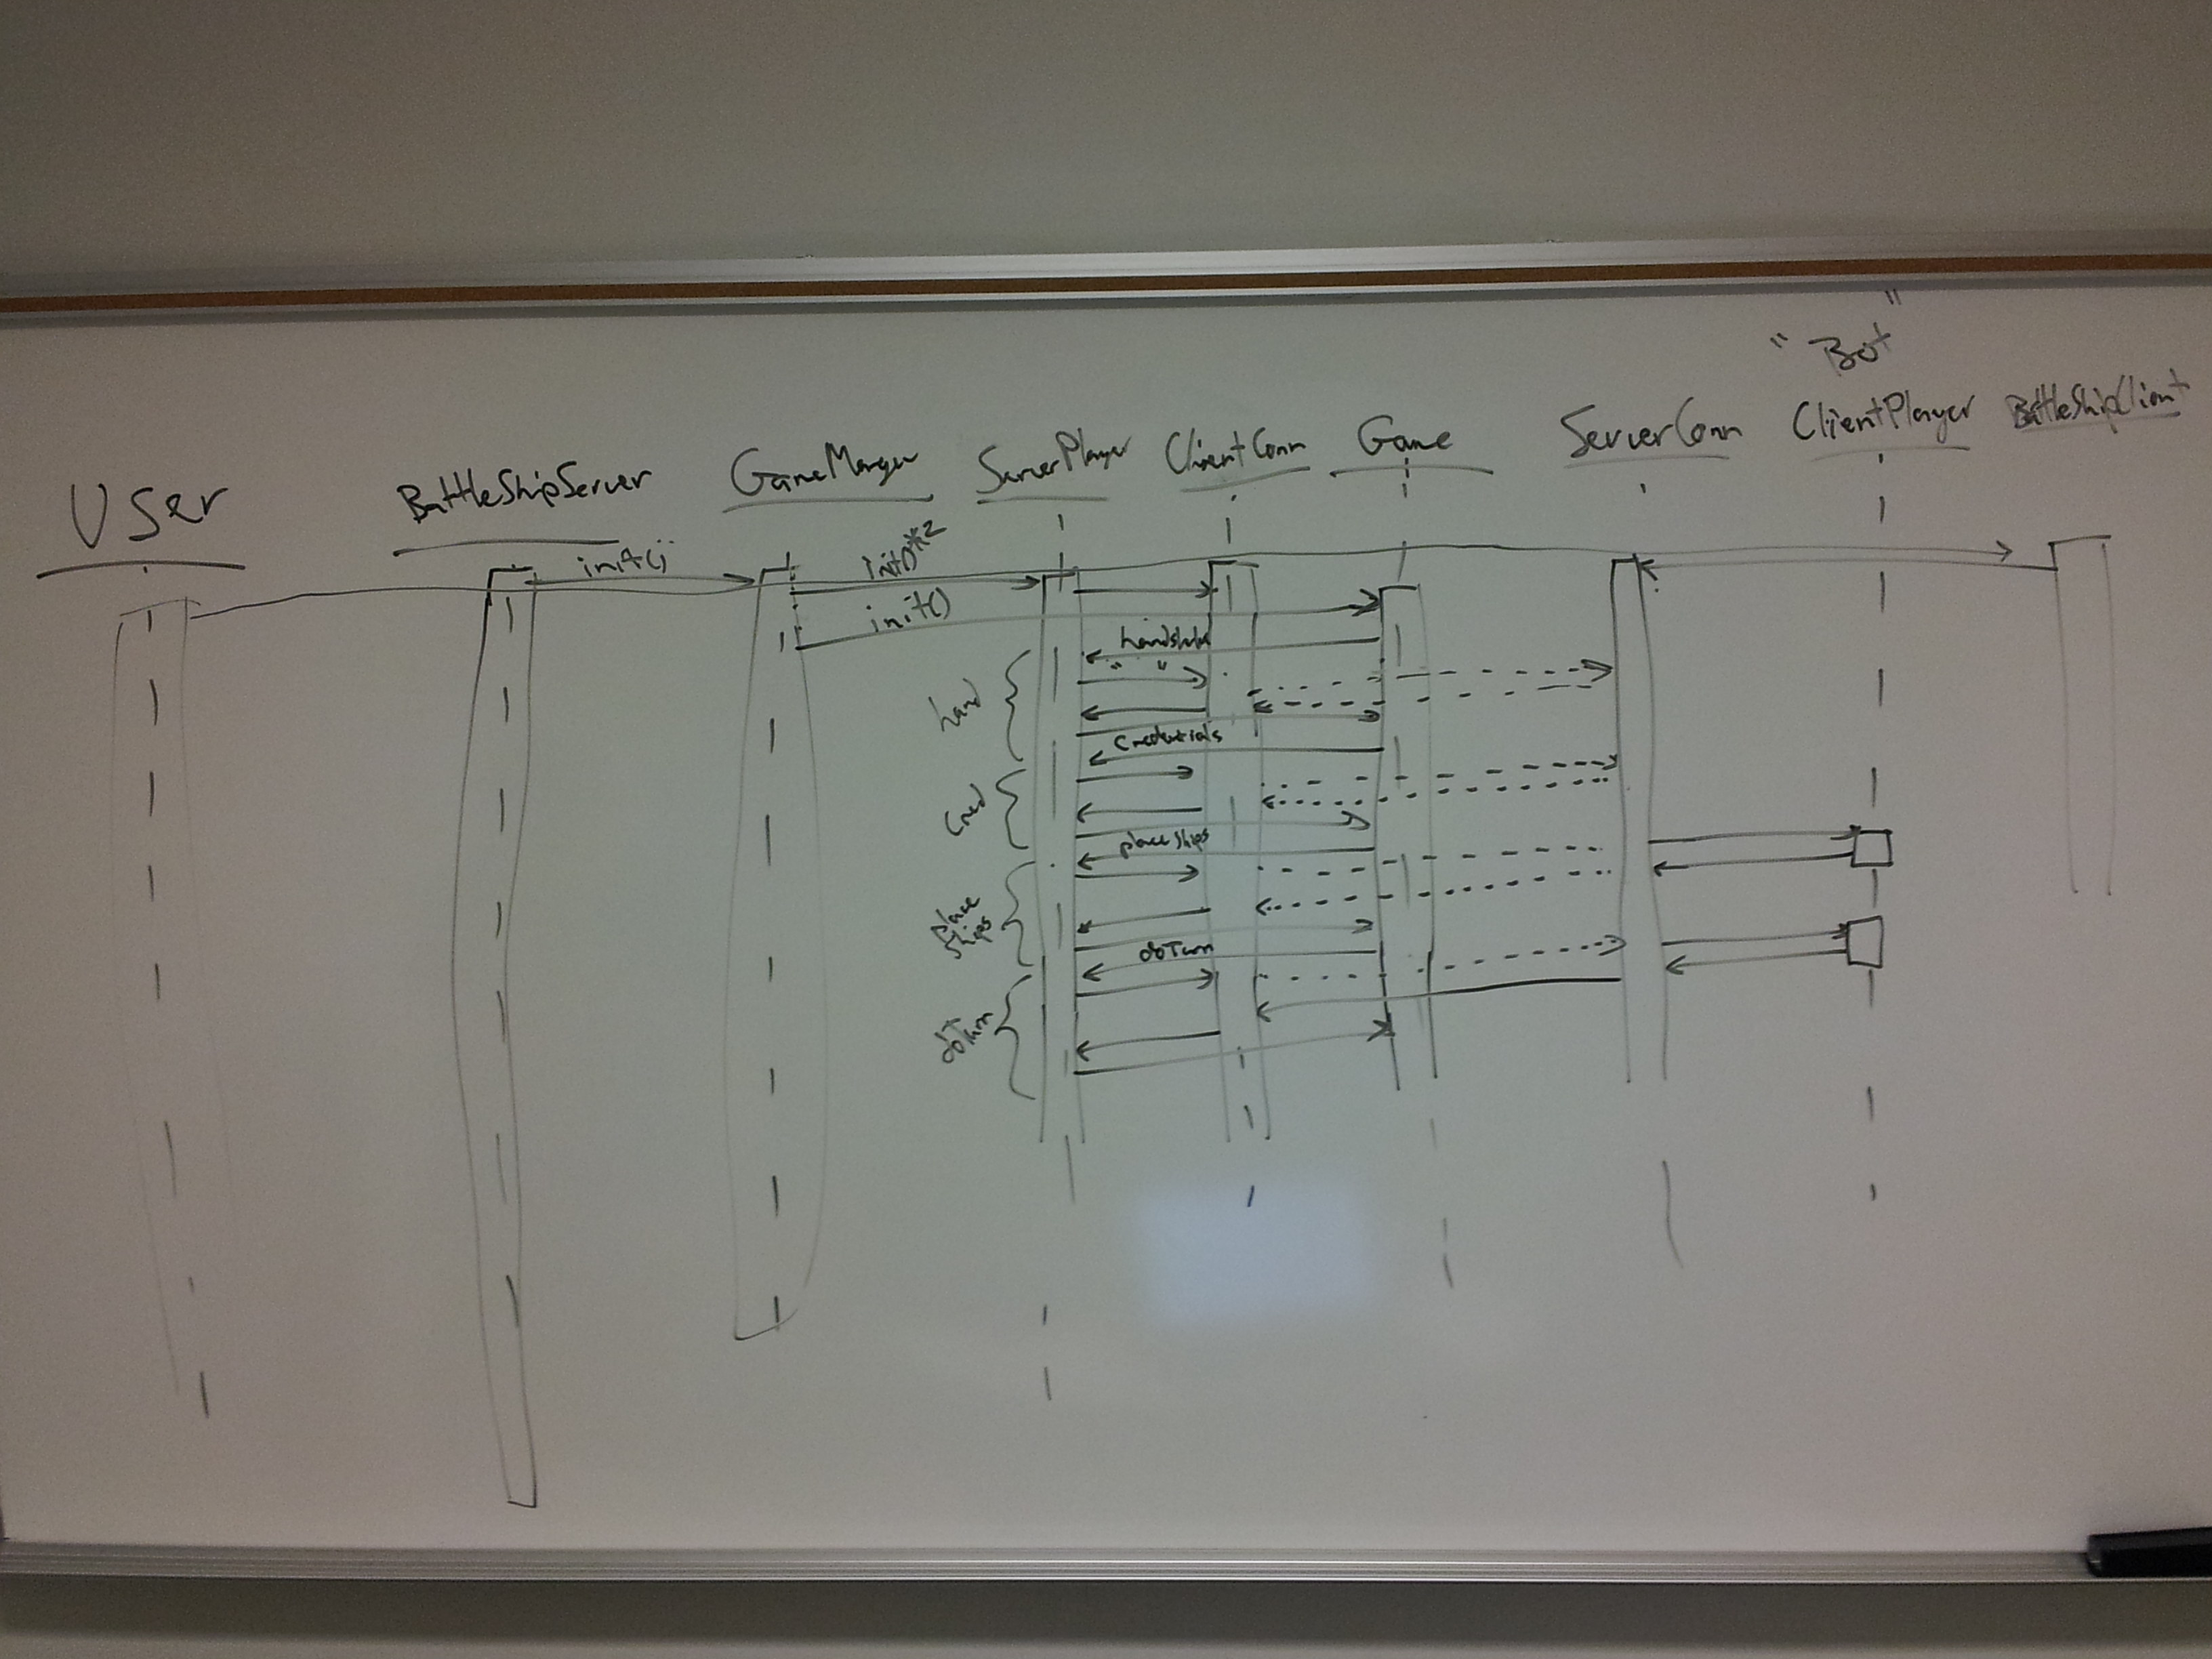 " Bot "
User
BattleShipServer
GameManger
ServerPlayer
ClientConn
Game
ServerConn
ClientPlayer
BattleShipClient
init();
init()*2
init()
handshake
" "
hand
Credentials
Cred
place Ships
place
Ships
doTurn
doTurn